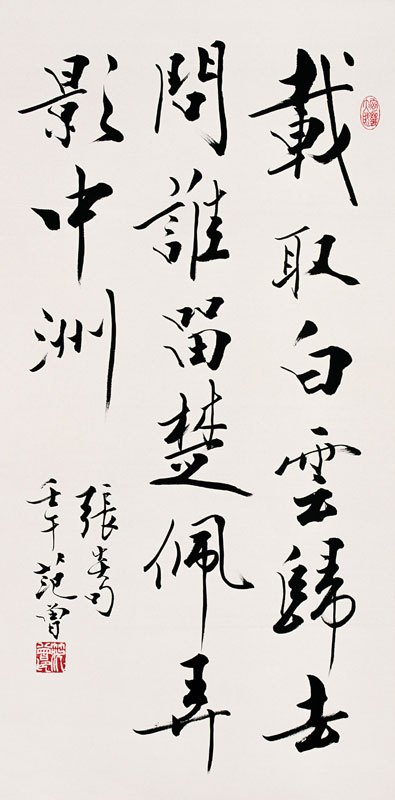 載取白雲歸去
問誰留楚佩弄
影中洲
張炎句
壬午范曾